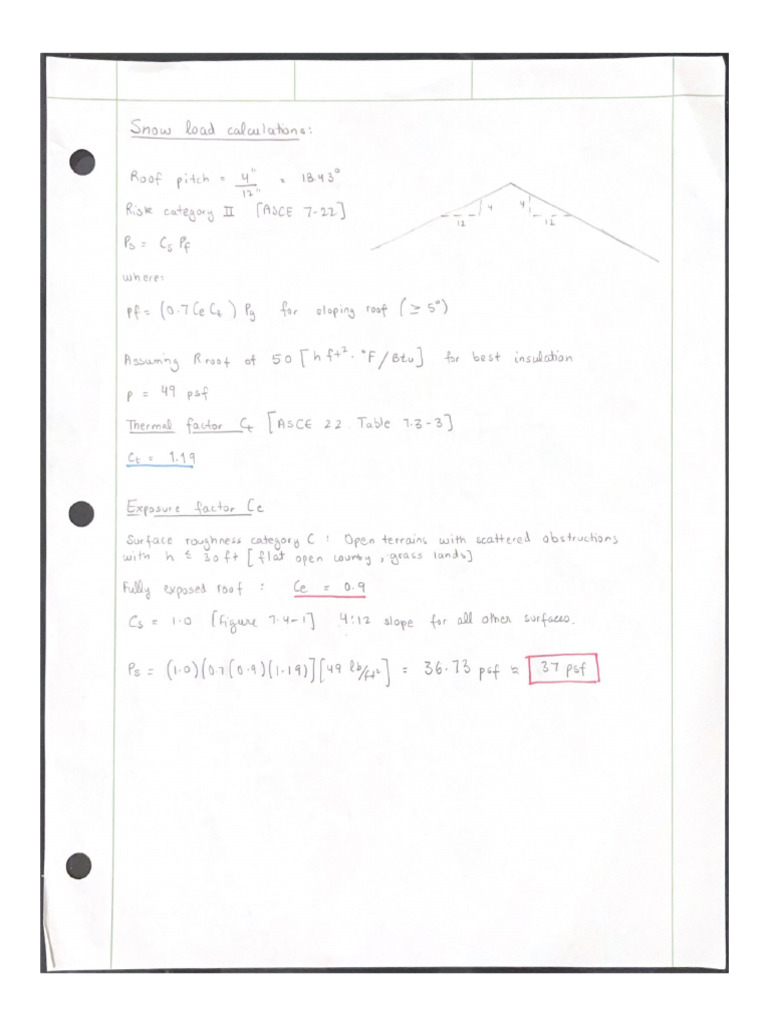 Snow load calculations:
Roof pitch = 4"/12" = 18.43°
Risk category II [ASCE 7-22]
4 4
12 12
Ps = Cs Pf
where:
pf = (0.7 Ce Ct) Pg for sloping roof (≥ 5°)
Assuming Rroof of 50 [h ft²· °F/Btu] for best insulation
p = 49 psf
Thermal factor Ct [ASCE 22. Table 7.3-3]
Ct = 1.19
Exposure factor Ce
Surface roughness category C : Open terrains with scattered obstructions
with h ≤ 30ft [flat open country, grass lands]
Fully exposed roof : Ce = 0.9
Cs = 1.0 [figure 7.4-1] 4:12 slope for all other surfaces.
Ps = (1.0)(0.7(0.9)(1.19)][49 lb/ft²] = 36.73 psf ≈ 37 psf